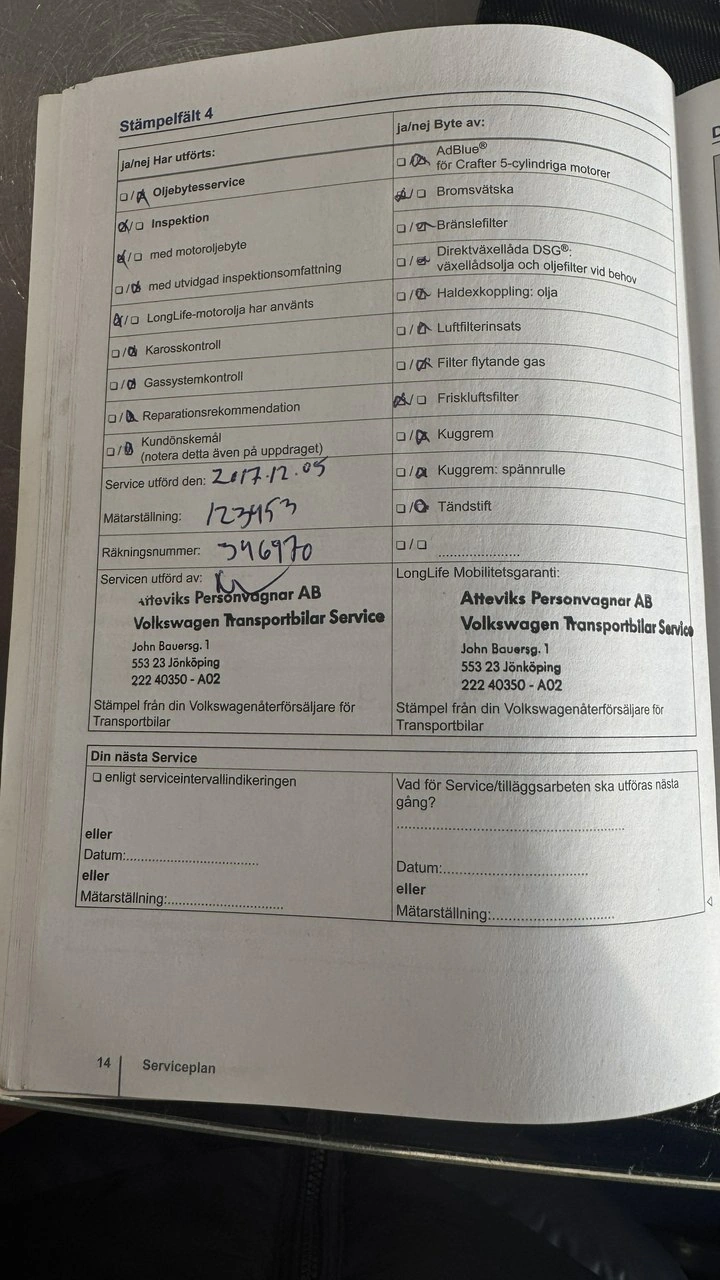 Stämpelfält 4
ja/nej Har utförts:
❏/❏ Oljebytesservice
❏/❏ Inspektion
❏/❏ med motoroljebyte
❏/❏ med utvidgad inspektionsomfattning
❏/❏ LongLife-motorolja har använts
❏/❏ Karosskontroll
❏/❏ Gassystemkontroll
❏/❏ Reparationsrekommendation
❏/❏ Kundönskemål
(notera detta även på uppdraget)
Service utförd den: 2017.12.05
Mätarställning:
Räkningsnummer: 346970
Servicen utförd av:
Atteviks Personvagnar AB
Volkswagen Transportbilar Service
John Bauersg. 1
553 23 Jönköping
222 40350 - A02
Stämpel från din Volkswagenåterförsäljare för
Transportbilar
ja/nej Byte av:
❏/❏ AdBlue®
för Crafter 5-cylindriga motorer
❏/❏ Bromsvätska
❏/❏ Bränslefilter
❏/❏ Direktväxellåda DSG®:
växellådsolja och oljefilter vid behov
❏/❏ Haldexkoppling: olja
❏/❏ Luftfilterinsats
❏/❏ Filter flytande gas
❏/❏ Friskluftsfilter
❏/❏ Kuggrem
❏/❏ Kuggrem: spännrulle
❏/❏ Tändstift
❏/❏ ......................
LongLife Mobilitetsgaranti:
Atteviks Personvagnar AB
Volkswagen Transportbilar Service
John Bauersg. 1
553 23 Jönköping
222 40350 - A02
Stämpel från din Volkswagenåterförsäljare för
Transportbilar
Din nästa Service
❏ enligt serviceintervallindikeringen
eller
Datum:....................................
eller
Mätarställning:................................
Vad för Service/tilläggsarbeten ska utföras nästa
gång?
..............................................................
Datum:.......................................
eller
Mätarställning:.................................
14
Serviceplan